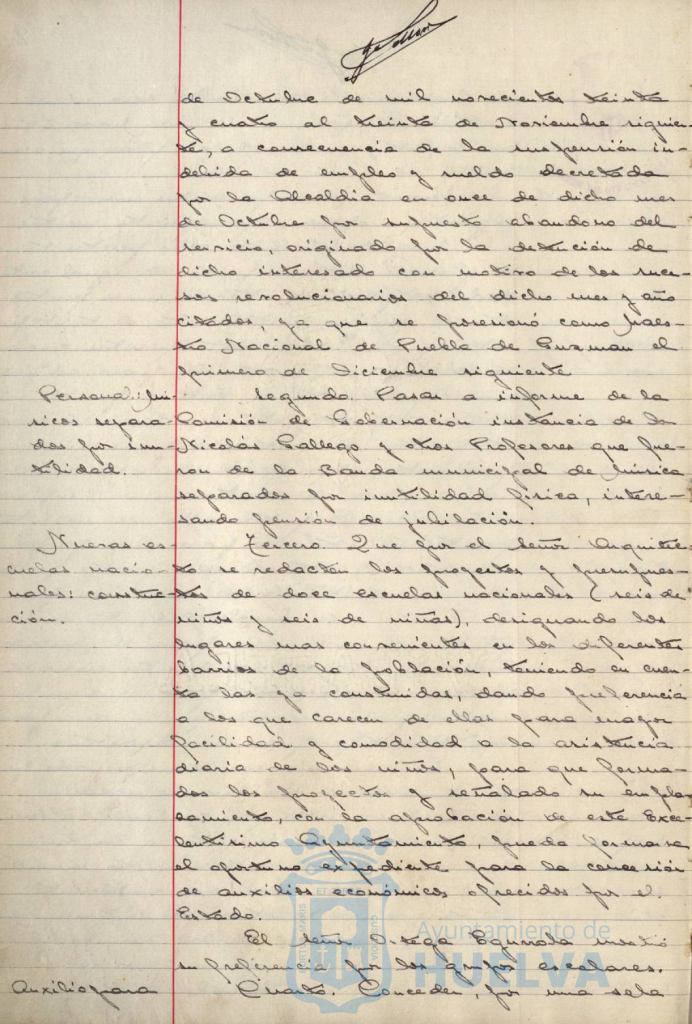 de Octubre de mil novecientos treinta
y cuatro al treinta de Noviembre siguien-
te, a consecuencia de la suspensión in-
debida de empleo y sueldo decretada
por la Alcaldía en once de dicho mes
de Octubre por supuesto abandono del
servicio, originado por la detención de
dicho interesado con motivo de los suce-
sos revolucionarios del dicho mes y año
citados, ya que se posesionó como Maes-
tro Nacional de Puebla de Guzman el
primero de Diciembre siguiente
Personal: Mú-
sicos separa-
dos por inu-
tilidad.
Segundo. Pasar a informe de la
Comisión de Gobernación instancia de Dn
Nicolás Gallego y otros Profesores que fue-
ron de la Banda municipal de Música
separados por inutilidad física, intere-
sando pensión de jubilación.
Nuevas es-
cuelas nacio-
nales: construc-
ción.
Tercero. Que por el señor Arquitec-
to se redacten los proyectos y presupues-
tos de doce escuelas nacionales (seis de
niños y seis de niñas), designando los
lugares mas convenientes en los diferentes
barrios de la población, teniendo en cuen-
ta las ya construidas, dando preferencia
a los que carecen de ellas para mayor
facilidad y comodidad a la asistencia
diaria de los niños, para que forma-
dos los proyectos y señalado su empla-
samiento, con la aprobación de este Exce-
lentísimo Ayuntamiento, pueda formarse
el oportuno expediente para la concesión
de auxilios económicos ofrecidos por el
Estado.
El señor Ortega Egurrola mostró
su preferencia por los grupos escolares.
Auxilio para
Cuarto. Conceder, por una sola
Ayuntamiento de
HUELVA